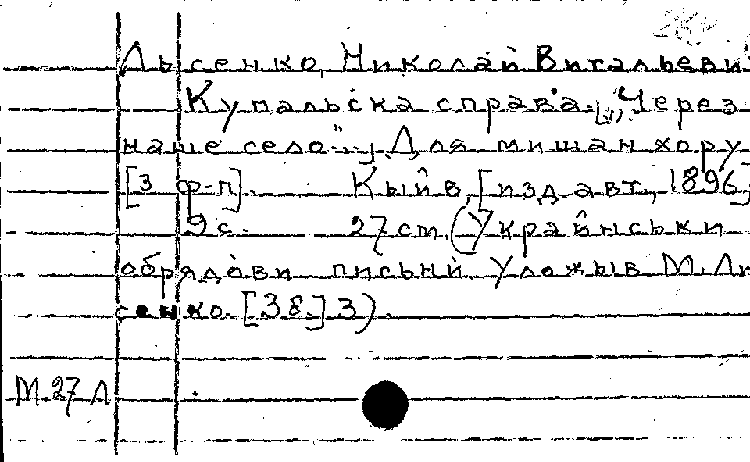 Лысенко, Николай Витальеви
Купальска справа. [1], "Через
наше село..." Для мишан хору
[з ф-п]. Кыйв, [изд. авт., 1896]
9 с. 27 cm. (Украйнськи
обрядави письнй. Уложыв М. Ли
сенко. [38.] 3).
М.27 Л